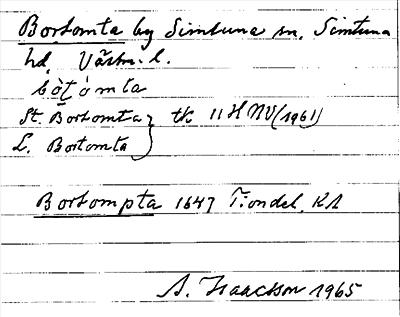 Bortomta by Simtuna sn. Simtuna
hd. Västm. l.
St. Bortomta } tk 11H NV (1961)
L. Bortomta
Bortompta 1647 Tiondel. KA
A. Isaacsson 1965